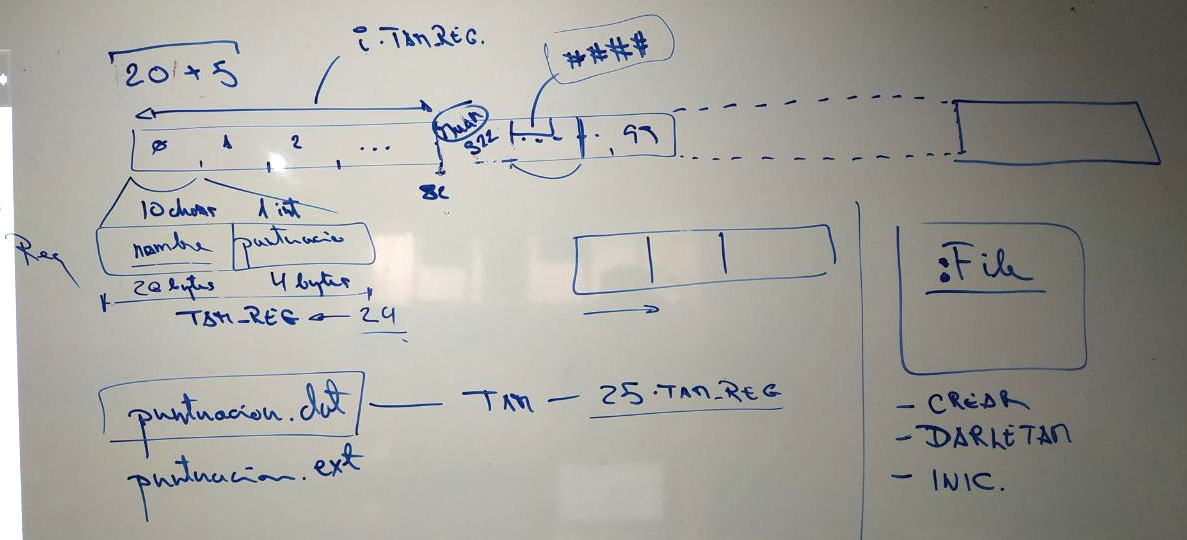 i·TAM_REG.
20 + 5
####
0 1 2 ... 99
10 char 1 int
Reg
nombre puntuacion
20 bytes 4 bytes
TAM_REG ← 24
:File
puntuacion.dat — TAM — 25·TAM_REG
puntuacion.ext
- CREAR
- DARLE TAM
- INIC.